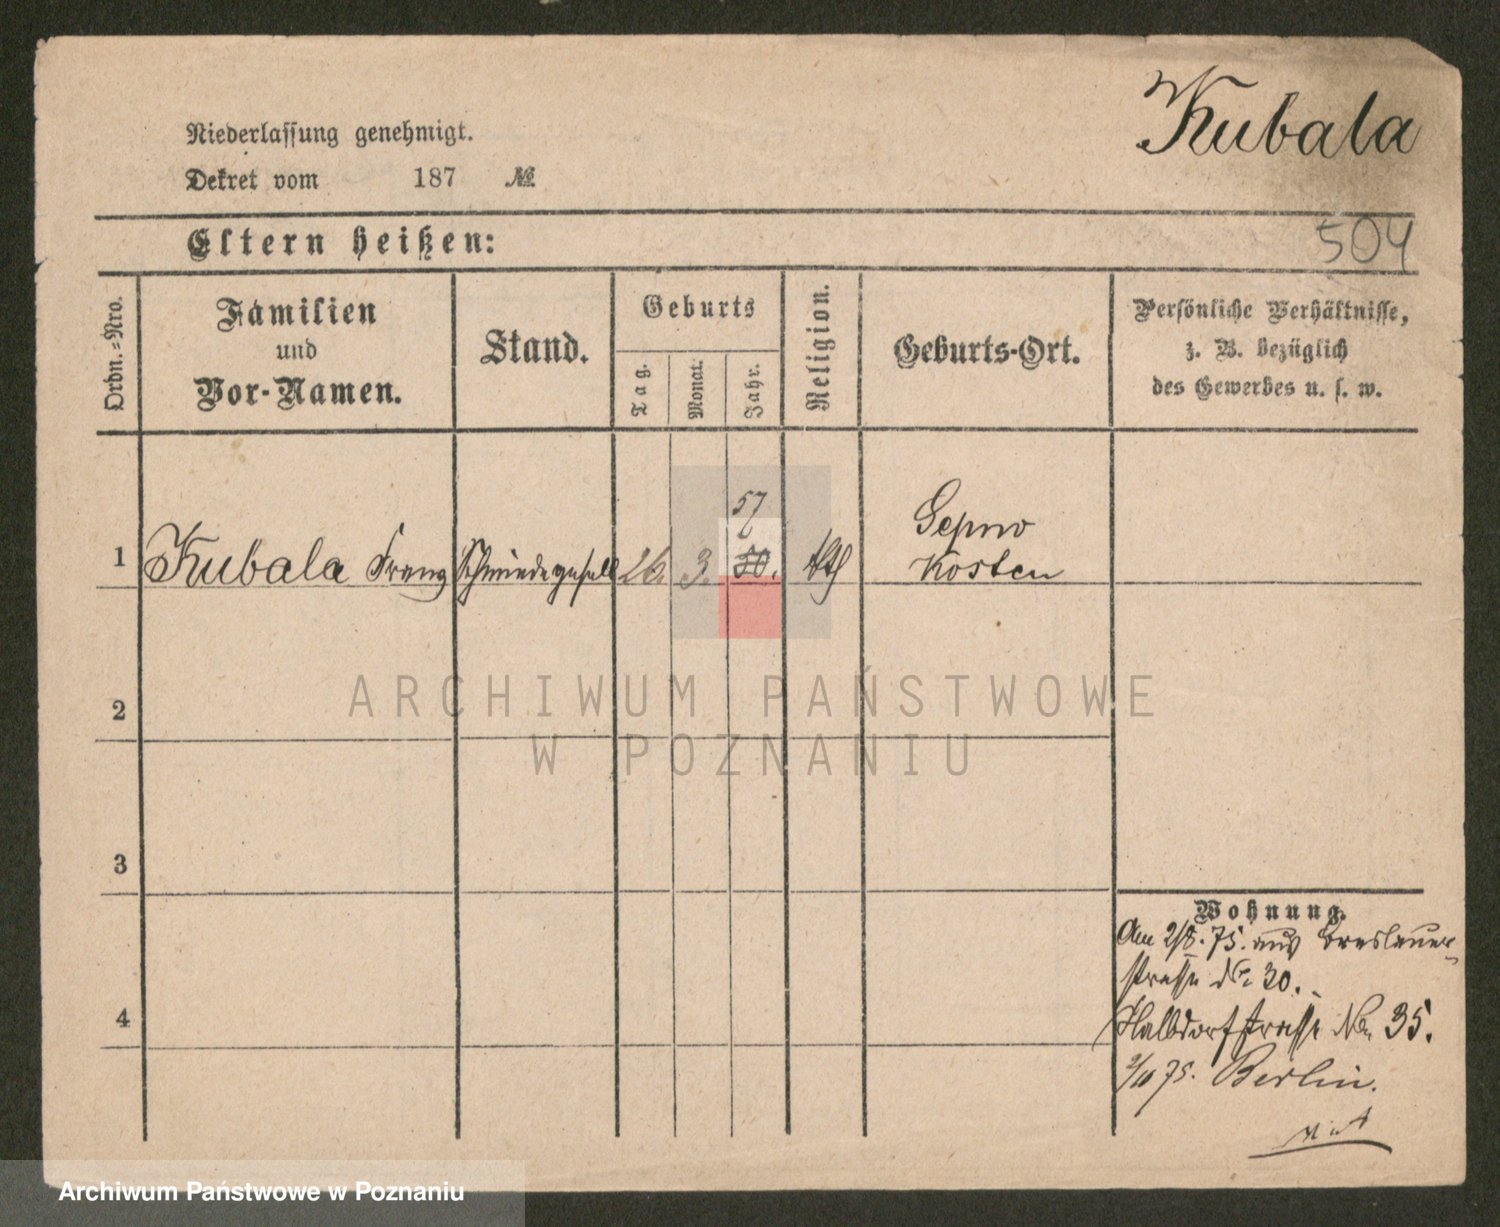 Kubala
Niederlassung genehmigt.
Dekret vom 187 №
Eltern heißen:
504
Ordn.-Nro.
Familien
und
Vor-Namen.
Stand.
Geburts
Tag.
Monat.
Jahr.
Religion.
Geburts-Ort.
Persönliche Verhältnisse,
z. B. bezüglich
des Gewerbes u. s. w.
57
1 Kubala Franz Schmiedegesell 26. 3. 50. kth
Gepno
Kosten
2
3
4
Wohnung.
Am 2/8. 75. aus Breslauer-
strasse No 30.
Halbdorfstrasse No. 35.
75. Berlin.
ARCHIWUM PAŃSTWOWE
W POZNANIU
Archiwum Państwowe w Poznaniu